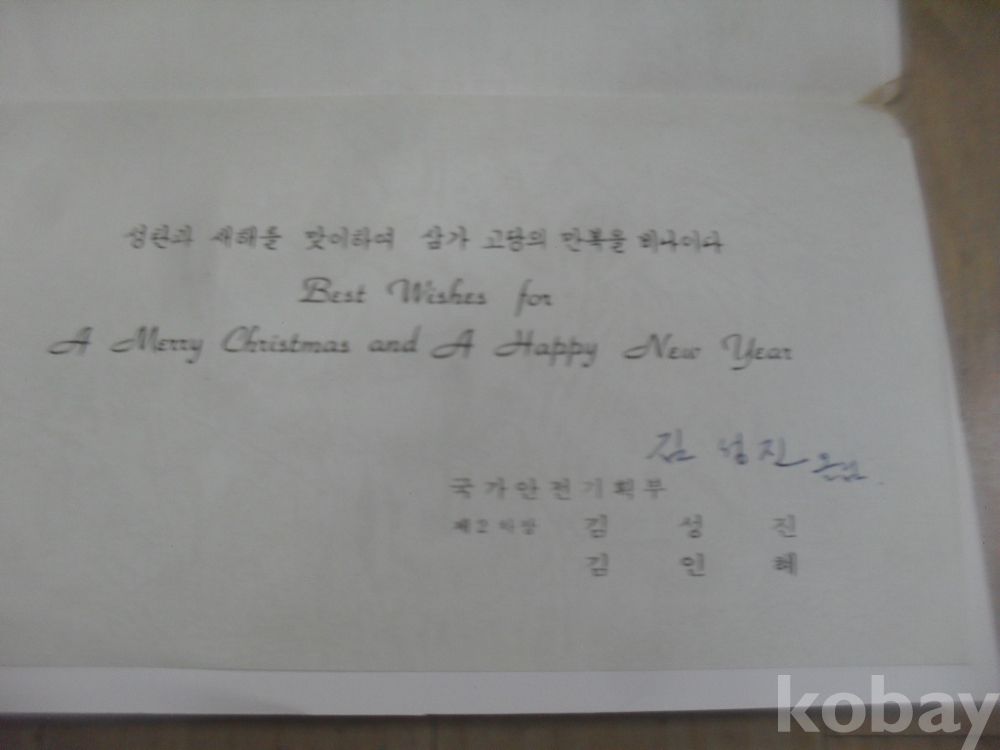 성탄과 새해를 맞이하여 삼가 고당의 만복을 비나이다
Best Wishes for
A Merry Christmas and A Happy New Year
김 성진
국가안전기획부
제2차장 김 성 진
김 인 혜
kobay